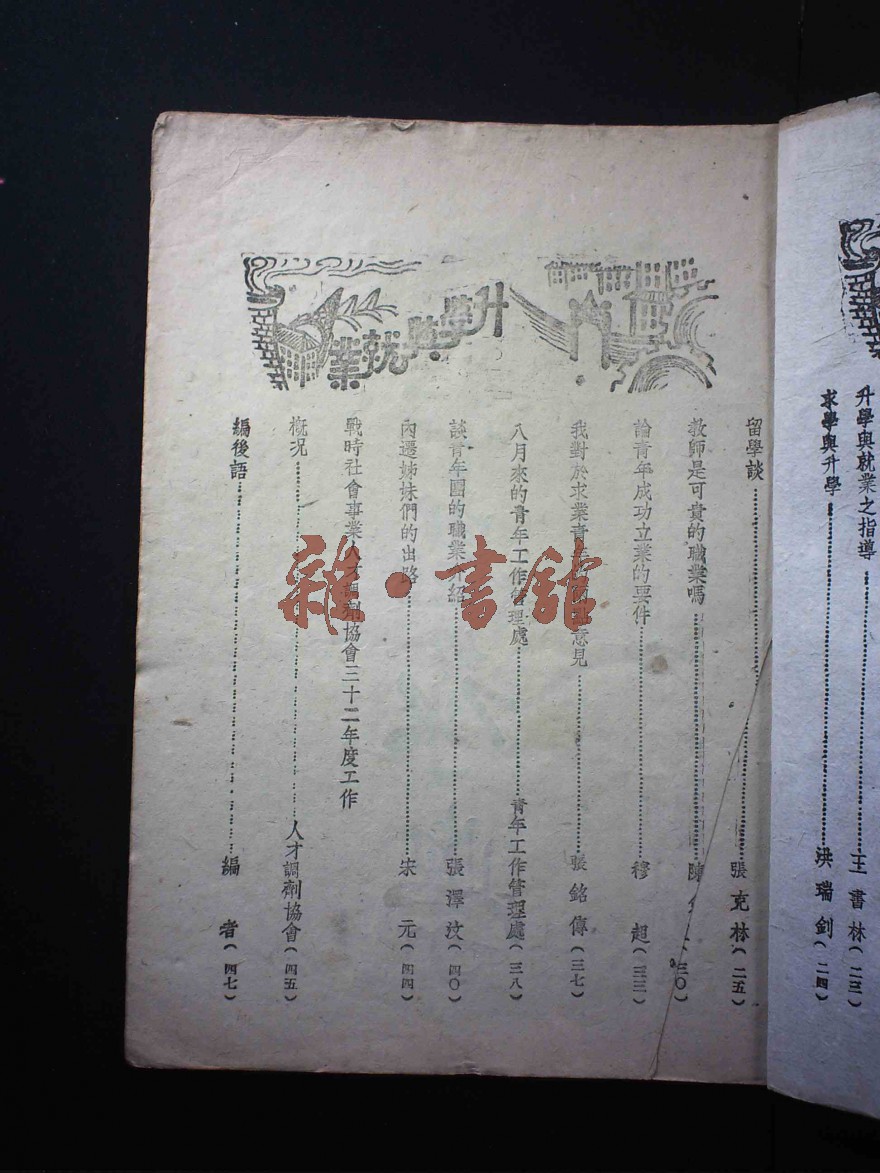 升學與就業
升學與就業之指導 王書林(二三)
求學與升學 洪瑞釗(二四)
留學談 張克林(二五)
教師是可貴的職業嗎 陳 三〇)
論青年成功立業的要件 穆超(三三)
我對於求業青年 意見 張銘傳(三七)
八月來的青年工作管理處 青年工作管理處(三八)
談青年團的職業介紹 張澤汶(四〇)
內遷姊妹們的出路 宋元(四四)
戰時社會事業人才調劑協會三十二年度工作
概況 人才調劑協會(四五)
編後語 編者(四七)
雜·書館